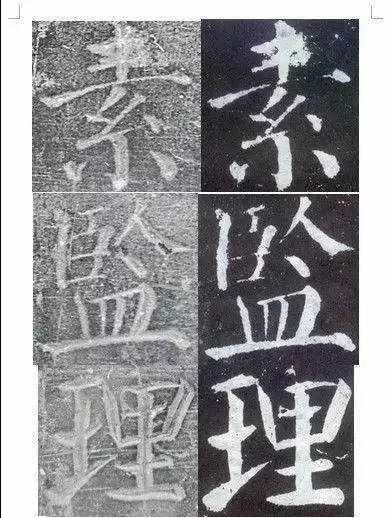 素 素
監 監
理 理